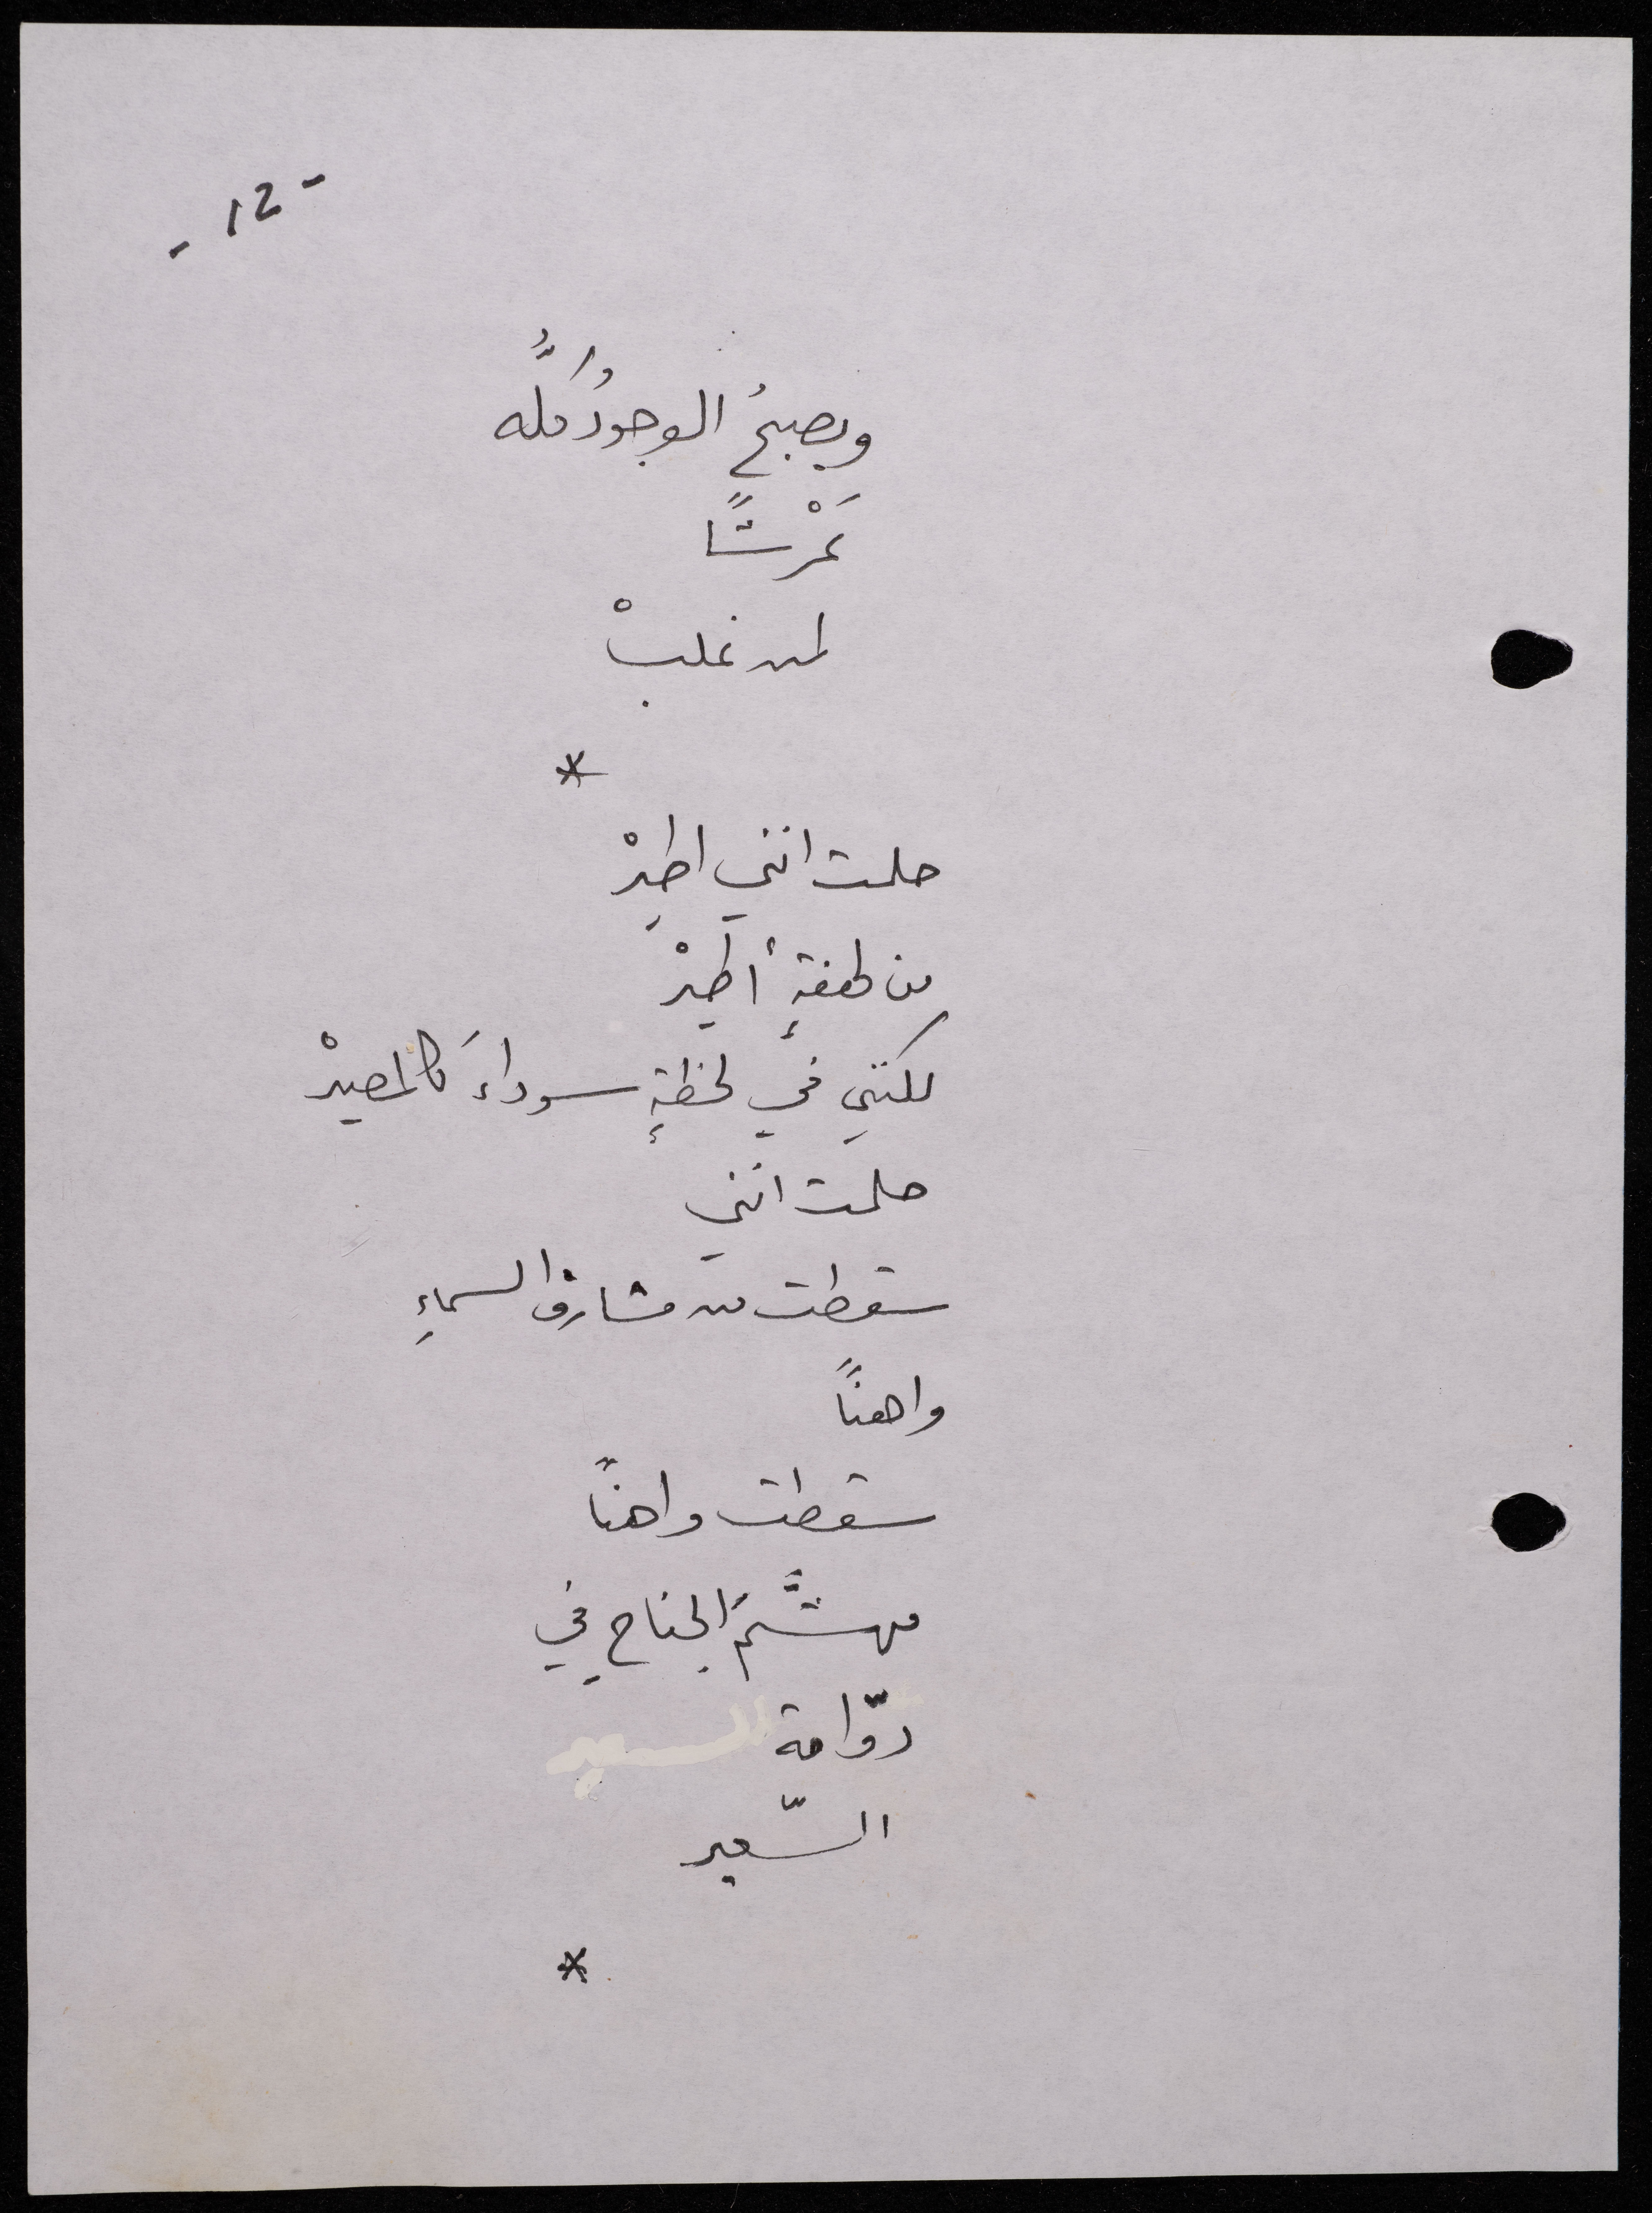 - 12 -
ويصبحُ الوجودُ كلُّه
عَرْشًا
لمن غلبْ
*
حلمت انني اطيرْ
من طفقةٍ أطيرْ
لكنني في لحظةٍ سوداءَ كالمصيرْ
حلمت انني
سقطت من مشارف السماءِ
واهنًا
سقطت واهنًا
مهشَّمَ الجناحِ في
دوّامة
السّعير
*